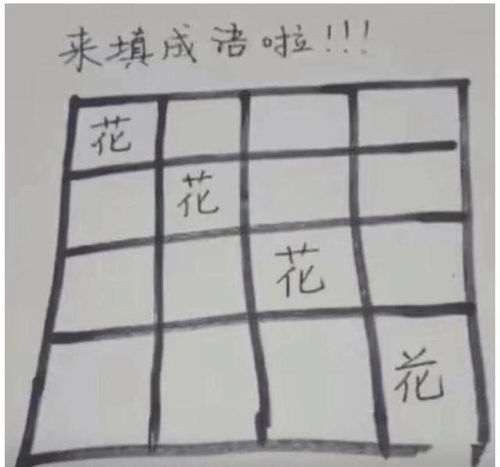 来填成语啦!!!
花
花
花
花